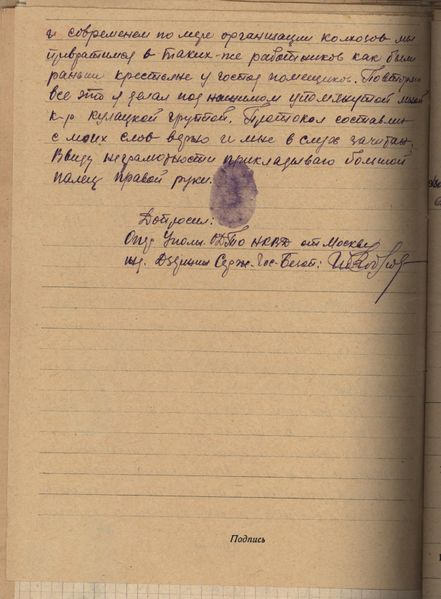 и современем по мере организации колхозов мы
превратимся в таких-же работников как были
раньше крестьяне у господ помещиков. Повторяю
все это я делал под нашимом упомянутой мной
к-р кулацкой группой. Протокол составлен
с моих слов верно и мне в слух зачитан.
Ввиду неграмотности прикладываю большой
палец правой руки.
Допросил:
Опер Уполн. ДТО НКВД ст Москва
Серж. Гос-Безоп:
Подпись